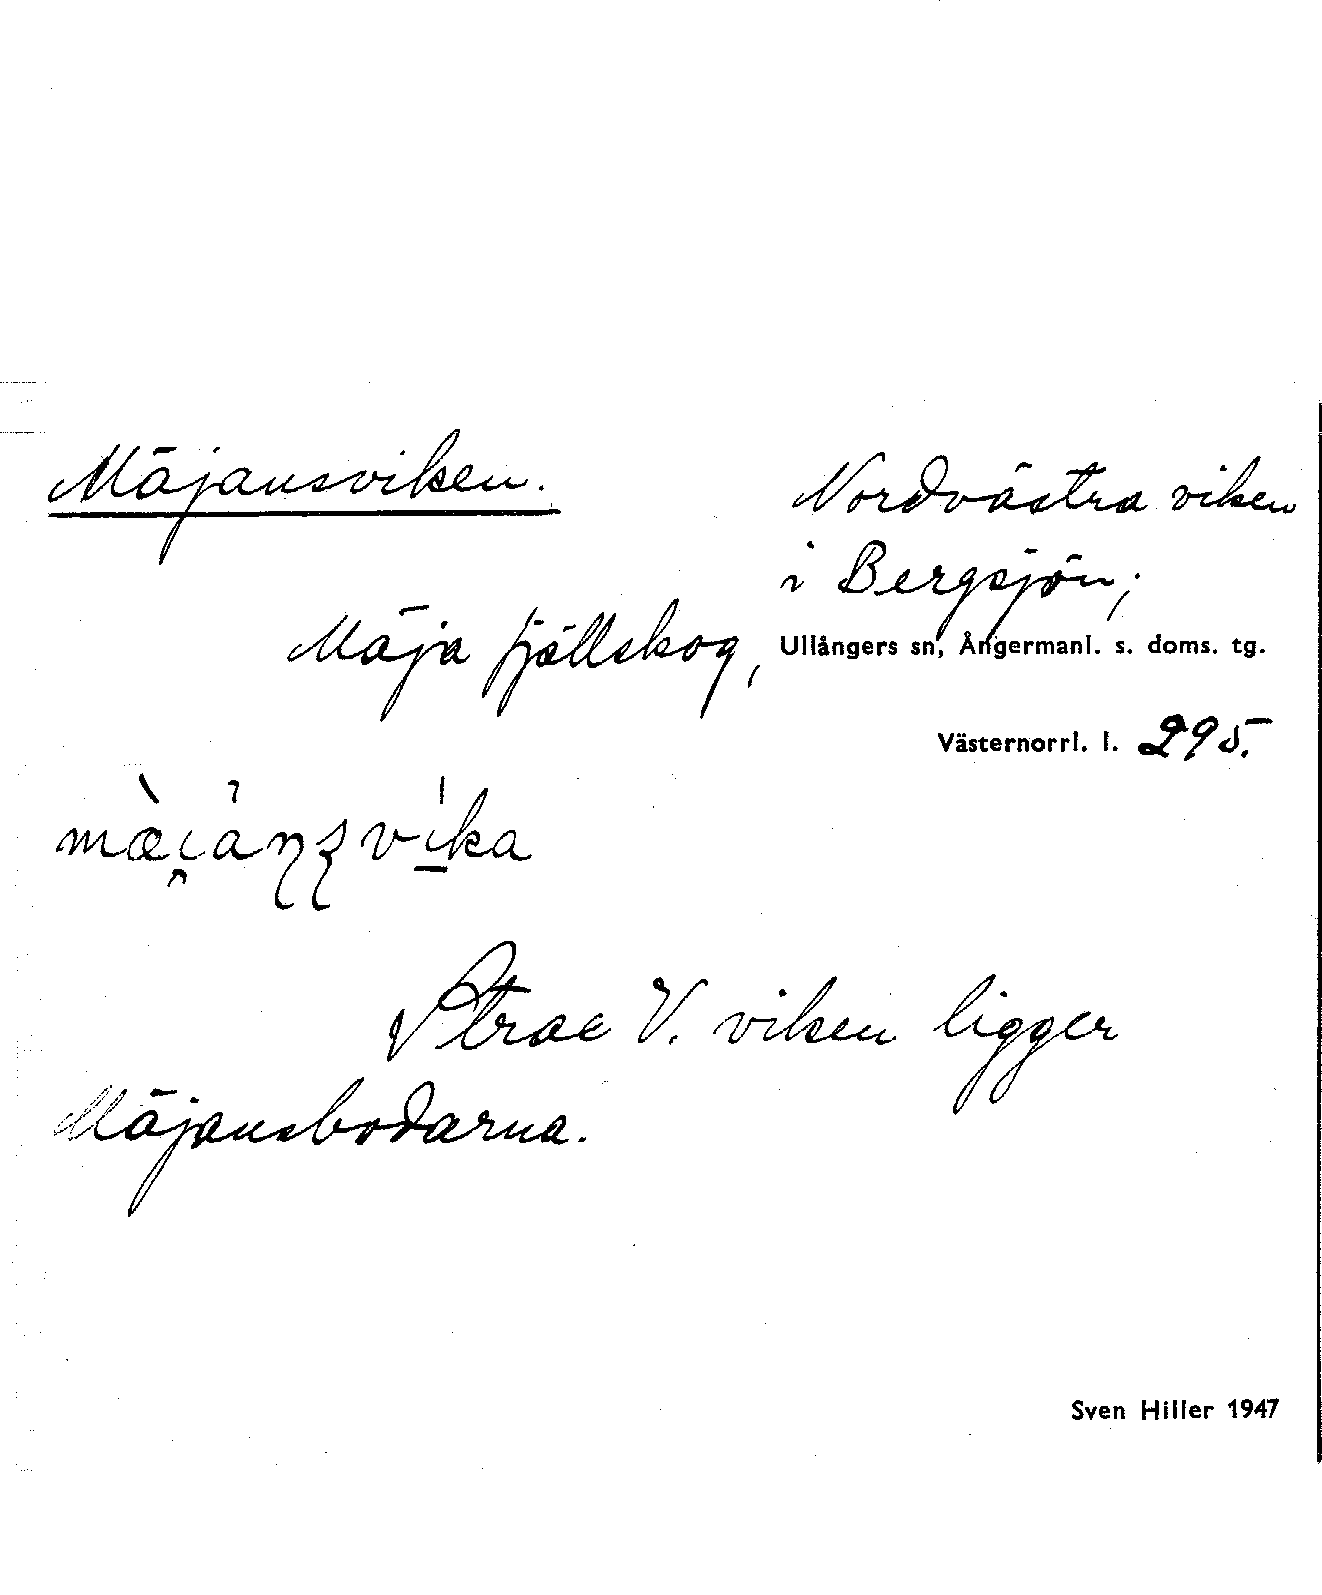 Mäjansviken.
Nordvästra viken
i Bergsjön;
Mäja fjällskog, Ullångers sn, Ångermanl. s. doms. tg.
Västernorrl. l. 295.
Strax V. viken ligger
Mäjansbodarna.
Sven Hiller 1947